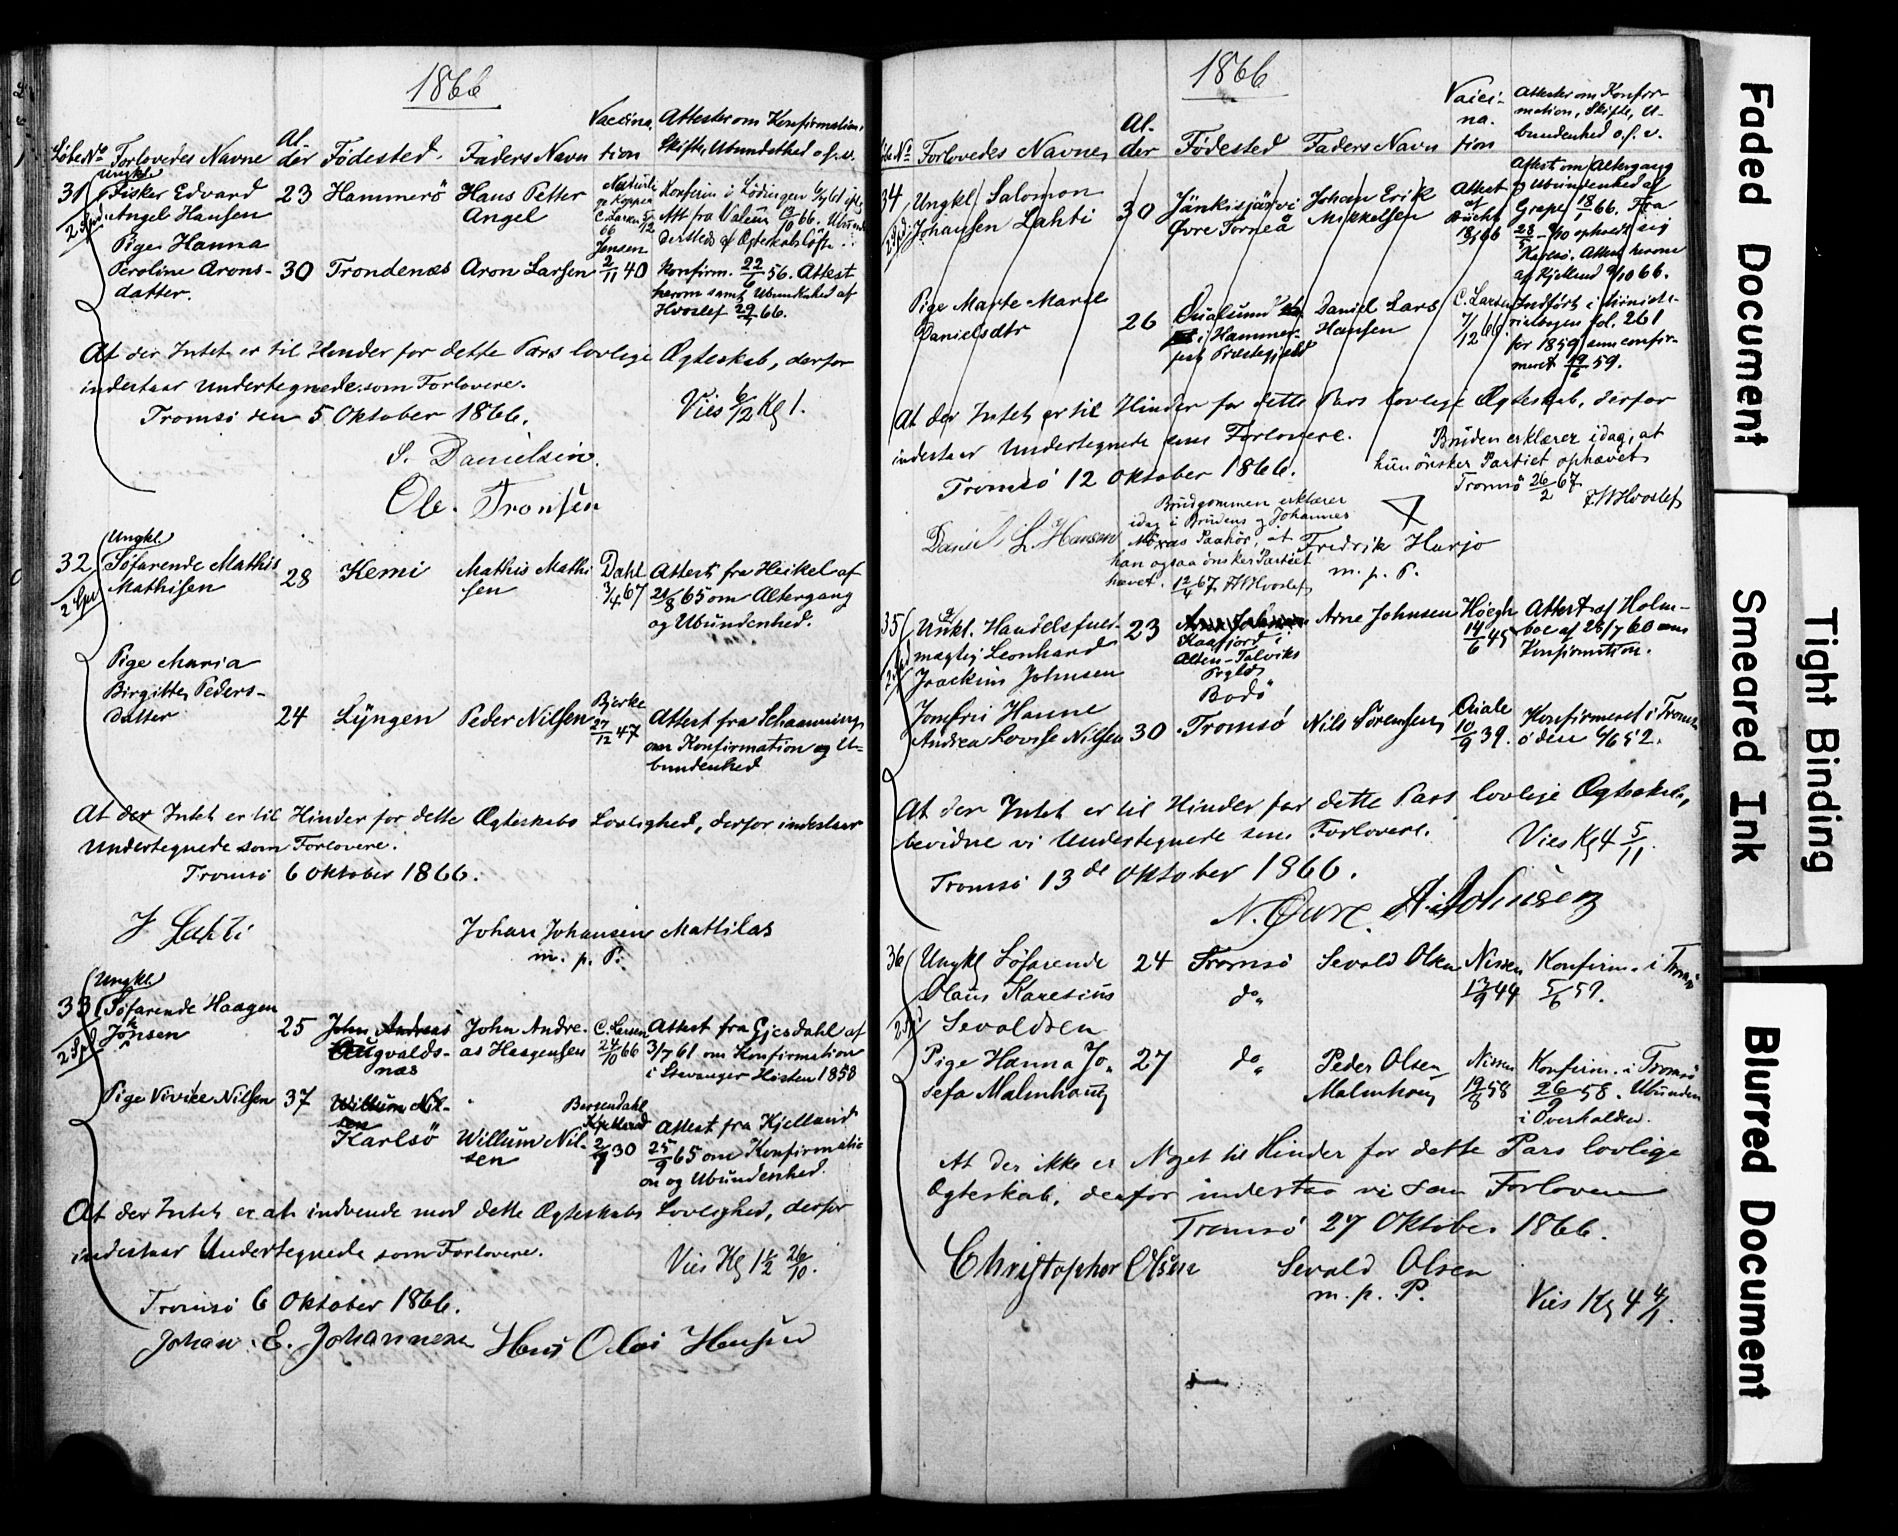 1866
Løbe No Forlovedes Navne Alder Fødested. Faders Navn Vaccination Attester om Konfirmation, Skifte, Ubundethed o.s.v.
31 Ungkl.
Fisker Edvard 23 Hammerö Hans Petter
Angel Hansen Angel
Konfirm. i Lödingen
Att fra
Pige Hanna
Peroline Arons- 30 Trondenæs Aron Larsen Jensen 2/11 40 Konfirm. 22/6 56. Attest
datter. herom samt Ubundenhed af
Hvoslef 29/9 66.
At der Intet er til Hinder for dette Pars lovlige Ægteskab, derfor
indestaar Undertegnede som Forlovere.
Tromsö den 5 Oktober 1866. Vies 6/12 Kl 1.
S. Danielsen.
Ole. Tronsen
32 Ungkl.
Søfarende Mathis 28 Kemi Mathis Mathi Dahl Attest fra Heikel af
Mathisen sen 3/4 67 21/8 65 om Altergang
og Ubundenhed.
Pige Maria
Birgitte Peders-
datter 24 Lyngen Peder Nilsen Bjerke 27/12 47 Attest fra Schaanning
om Konfirmation og U-
bundenhed
At der Intet er til Hinder for dette Ægteskabs Lovlighed, derfor indestaar
Undertegnede som Forlovere.
Tromsö 6 Oktober 1866.
J Lahti Johan Johansen Mattilas
m. p. P.
33 Ungkl.
Søfarende Haagen
Jonsen 25 John Andreas John Andre- C. Larsen Attest fra Gjesdahl af
Augvalds- as Haagensen 24/10 66 3/7 61 om Konfirmation
næs i Stavanger Høsten 1858
Pige Vivike Nilsen 37 Willum Nil-
sen
Karlsö Willum Nil- 2/9 30 Attest fra Kjelland
sen 25/9 65 om Konfirmatio
on og Ubundenhed.
At der Intet er at indvende mod dette Ægteskabs Lovlighed, derfor
indestaar Undertegnede som Forlovere. Vies Kl 1 1/2 26/10.
Tromsö 6 Oktober 1866.
Johan E. Johannesen Hans Olai Hansen
1866
Løbe No Forlovedes Navne, Alder Fødested Faders Navn Vaccination Attester om Konfirmation, Skifte, Ubundenhed o.s.v.
34 Ungkl Salomon Jänkisjärvi Johan Erik Attest Attest om Altergang
Johansen Lahti 30 Øvre Torneå Mikkelsen af og Ubundenhed af
Grape 18/1 66. Fra
ophold sig
i Karlsö. Attest herom
af Kjelland 9/10 66.
Pige Marte Marie Daniel Lars C. Larsen Indført i Ministe-
Danielsdtr 26 Qualsund Hansen 7/12 66 rialbogen fol. 261
i Hammer- for 1859 som confir-
fest Præstegjeld meret 19/6 59.
At der Intet er til Hinder for dette Pars lovlige Ægteskab, derfor
indestaar Undertegnede som Forlovere.
Tromsö 12 Oktober 1866.
Bruden erklærer idag, at
hun ønsker Partiet ophævet
Tromsö 26/2 67
F W Hvoslef
Brudgommen erklærer
idag i Brudens og Johannes
at
han ogsaa ønsker Partiet
hævet. 12/4 67. FWHvoslef
Daniel L. Hansen Fredrik Harjo
m. p. P.
35 Unkl. Handelsfuld- 23 Arne Johnsen Arne Johnsen Høegh Attest af Holm-
mægtig Leonhard Kaafjord i 14/6 45 boe af 28/7 60 om
Joackim Johnsen Alten-Talviks Konfirmation.
Prgld
Bodö
Jomfru Hanne
Andrea Lovise Nilsen 30 Tromsö Nils Sörensen, Quale 10/9 39. Konfirmeret i Troms
ö den 6/6 52.
At der Intet er til Hinder for dette Pars lovlige Ægteskab,
bevidne vi Undertegnede som Forlovere. Vies Kl 4 5/11.
Tromsö 13de Oktober 1866.
N. Qvre. A. Johnsen
36 Ungkl Söfarende 24 Tromsö Sevald Olsen Nissen Konfirm. i Tromsö
Olaus Karesius do 44 5/6 59.
Sevaldsen
Pige Hanna Jo- 27 do Peder Olsen Nissen Konfirm. i Tromsö
sefa Malmhaug Malmhaug 58. Ubunden
i Overhalden.
At der ikke er Noget til Hinder for dette Pars lovlige
Ægteskab, derfor indestaa vi som Forlovere
Tromsö 27 Oktober 1866.
Christopher Olsen Sevald Olsen
m. p. P.
Vies Kl 4 4/11.
Faded Document
Smeared Ink
Tight Binding
Blurred Document